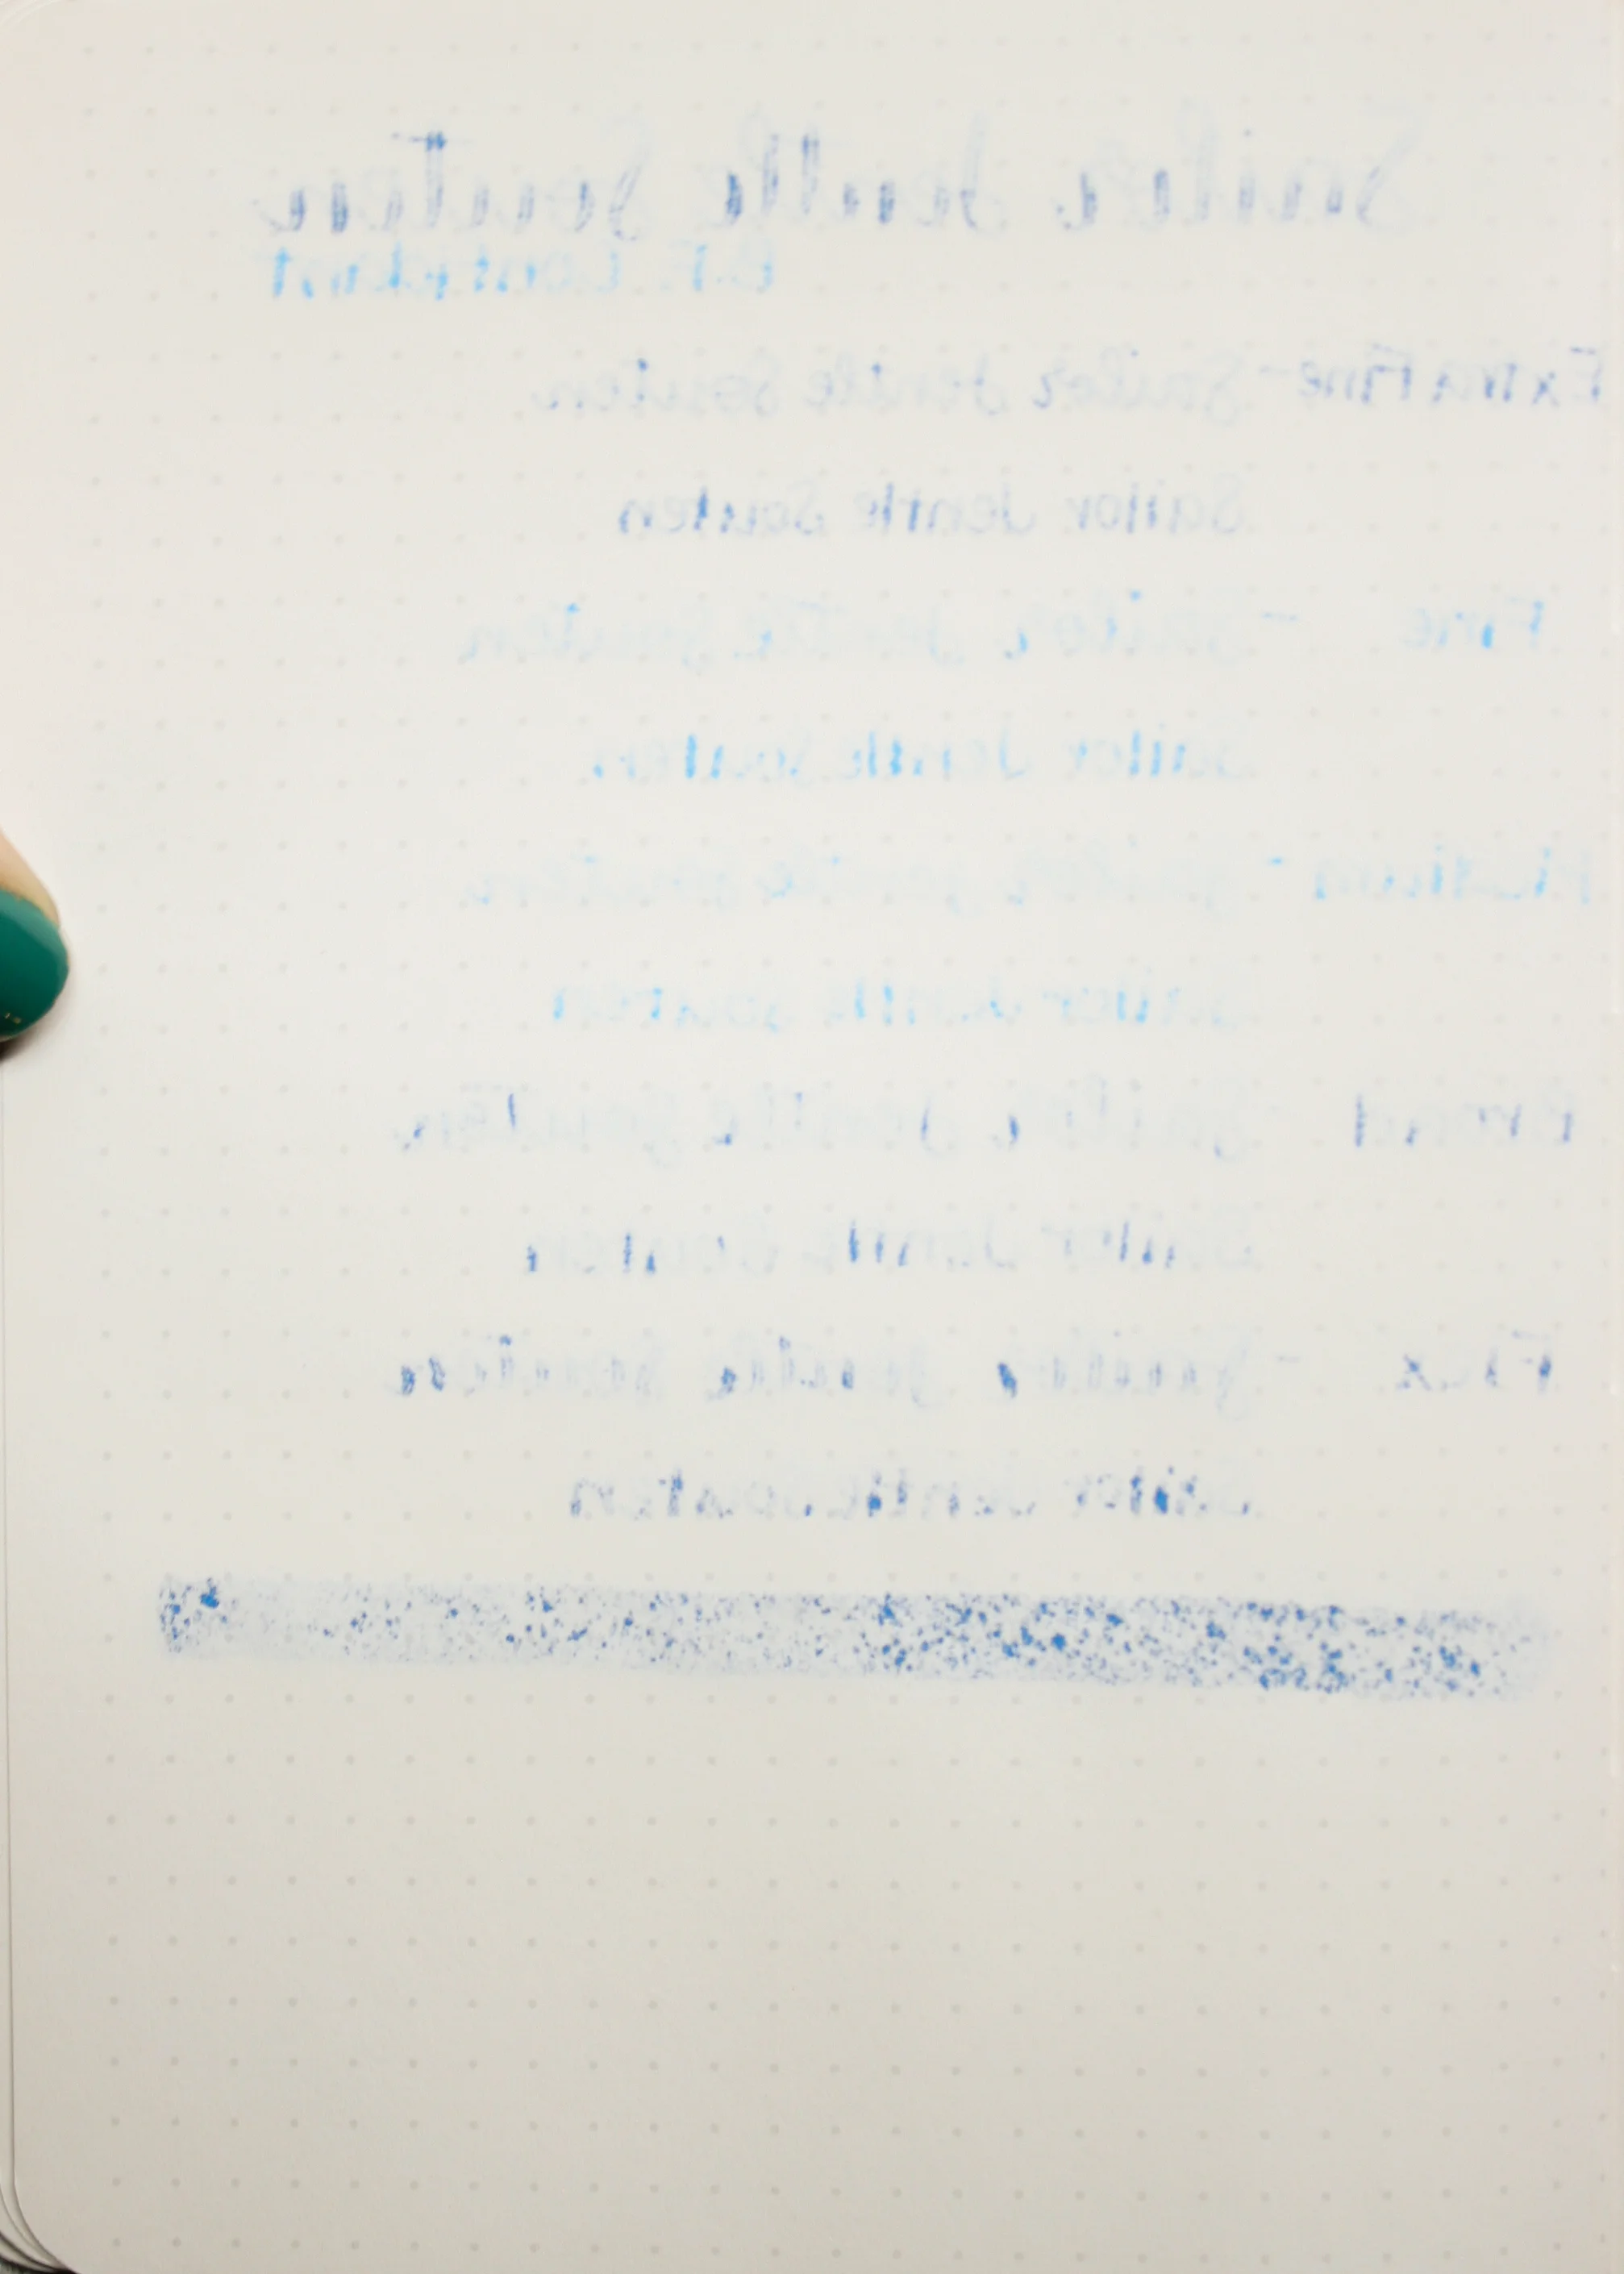 Sailor Jentle Souten
Extra Fine - Sailor Jentle Souten
Sailor Jentle Souten
Fine - Sailor Jentle Souten
Sailor Jentle Souten
Medium - Sailor Jentle Souten
Sailor Jentle Souten
Broad - Sailor Jentle Souten
Sailor Jentle Souten
Flex - Sailor Jentle Souten
Sailor Jentle Souten